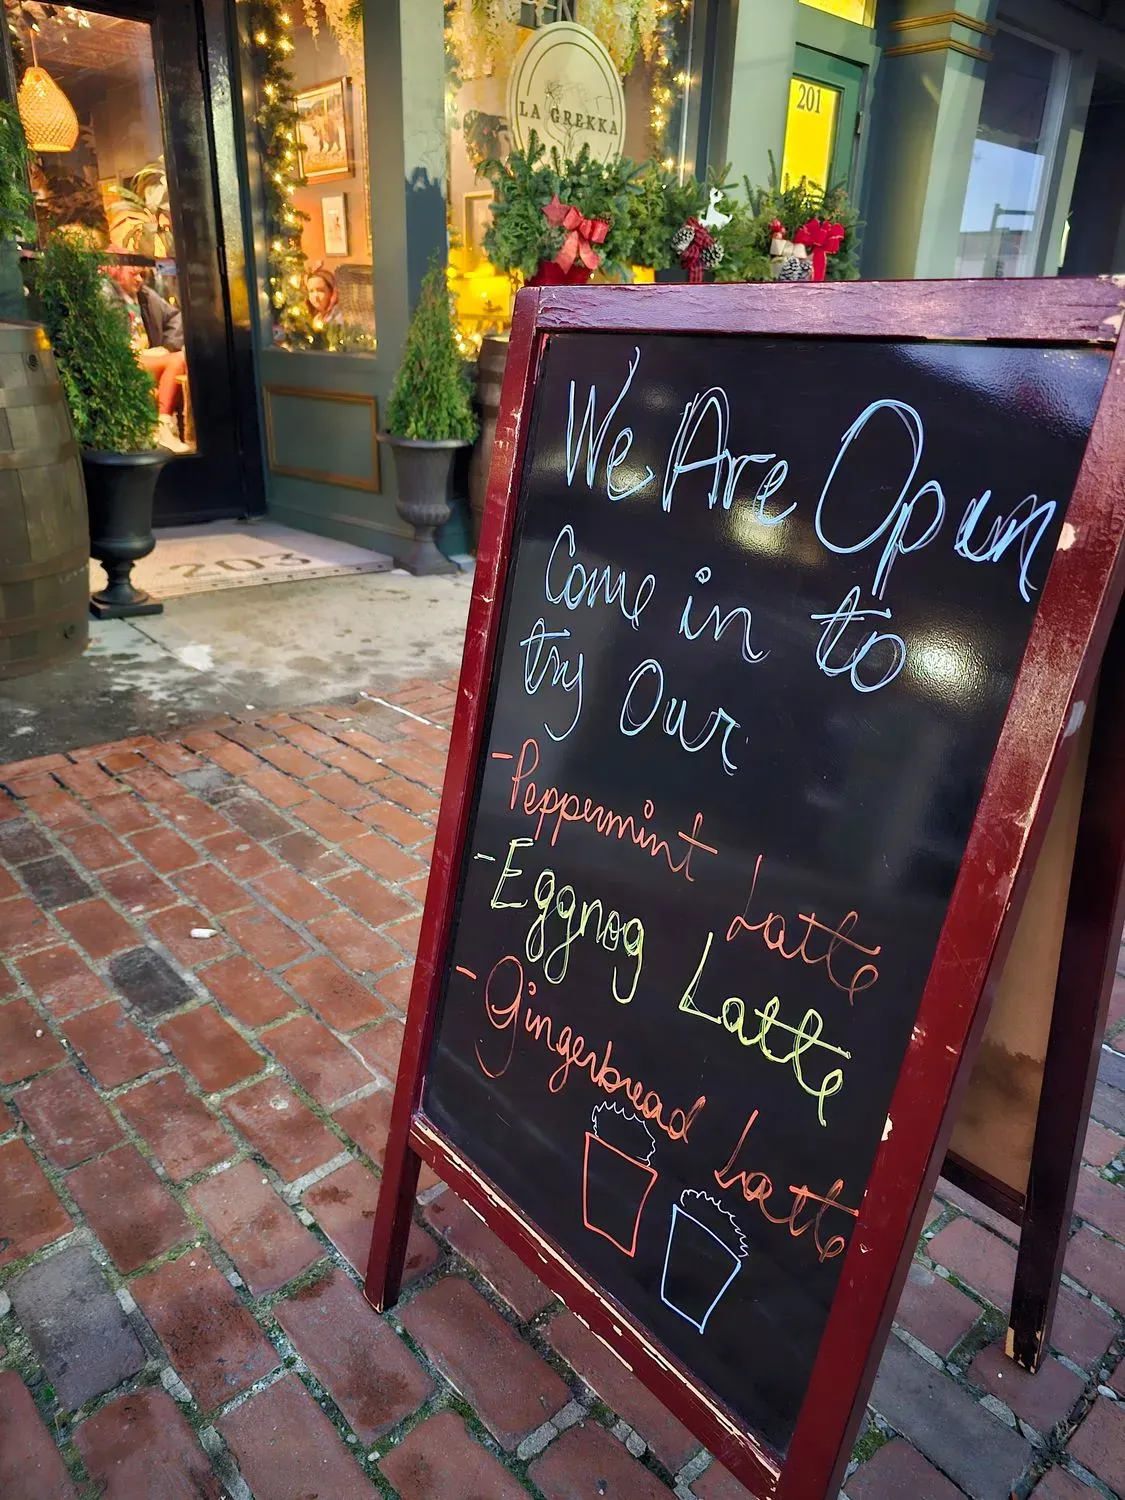 LA GREKKA
201
203
We Are Open
Come in to
try Our
-Peppermint Latte
-Eggnog Latte
-Gingerbread Latte